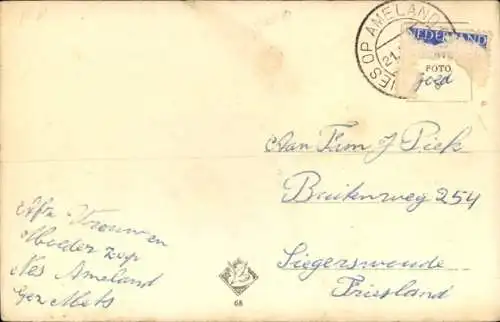 NES OP AMELAND
21
NEDERLAND
FOTO
Aan Fam J Piek
Buitenweg 254
Siegerswoude
Friesland
Afz Vrouw en
Moeder zop
Nes Ameland
Gez Mets
68